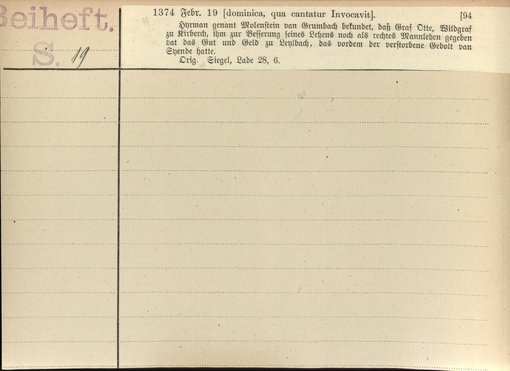 Beiheft.
S. 19
1374 Febr. 19 [dominica, qua cantatur Invocavit]. [94
Hyrman genant Molenstein van Grumbach bekundet, daß Graf Otte, Wildgraf
zu Kirberch, ihm zur Besserung seines Lehens noch als rechtes Mannlehen gegeben
hat das Gut und Geld zu Leylbach, das vordem der verstorbene Gebolt van
Syende hatte.
Orig. Siegel, Lade 28, 6.